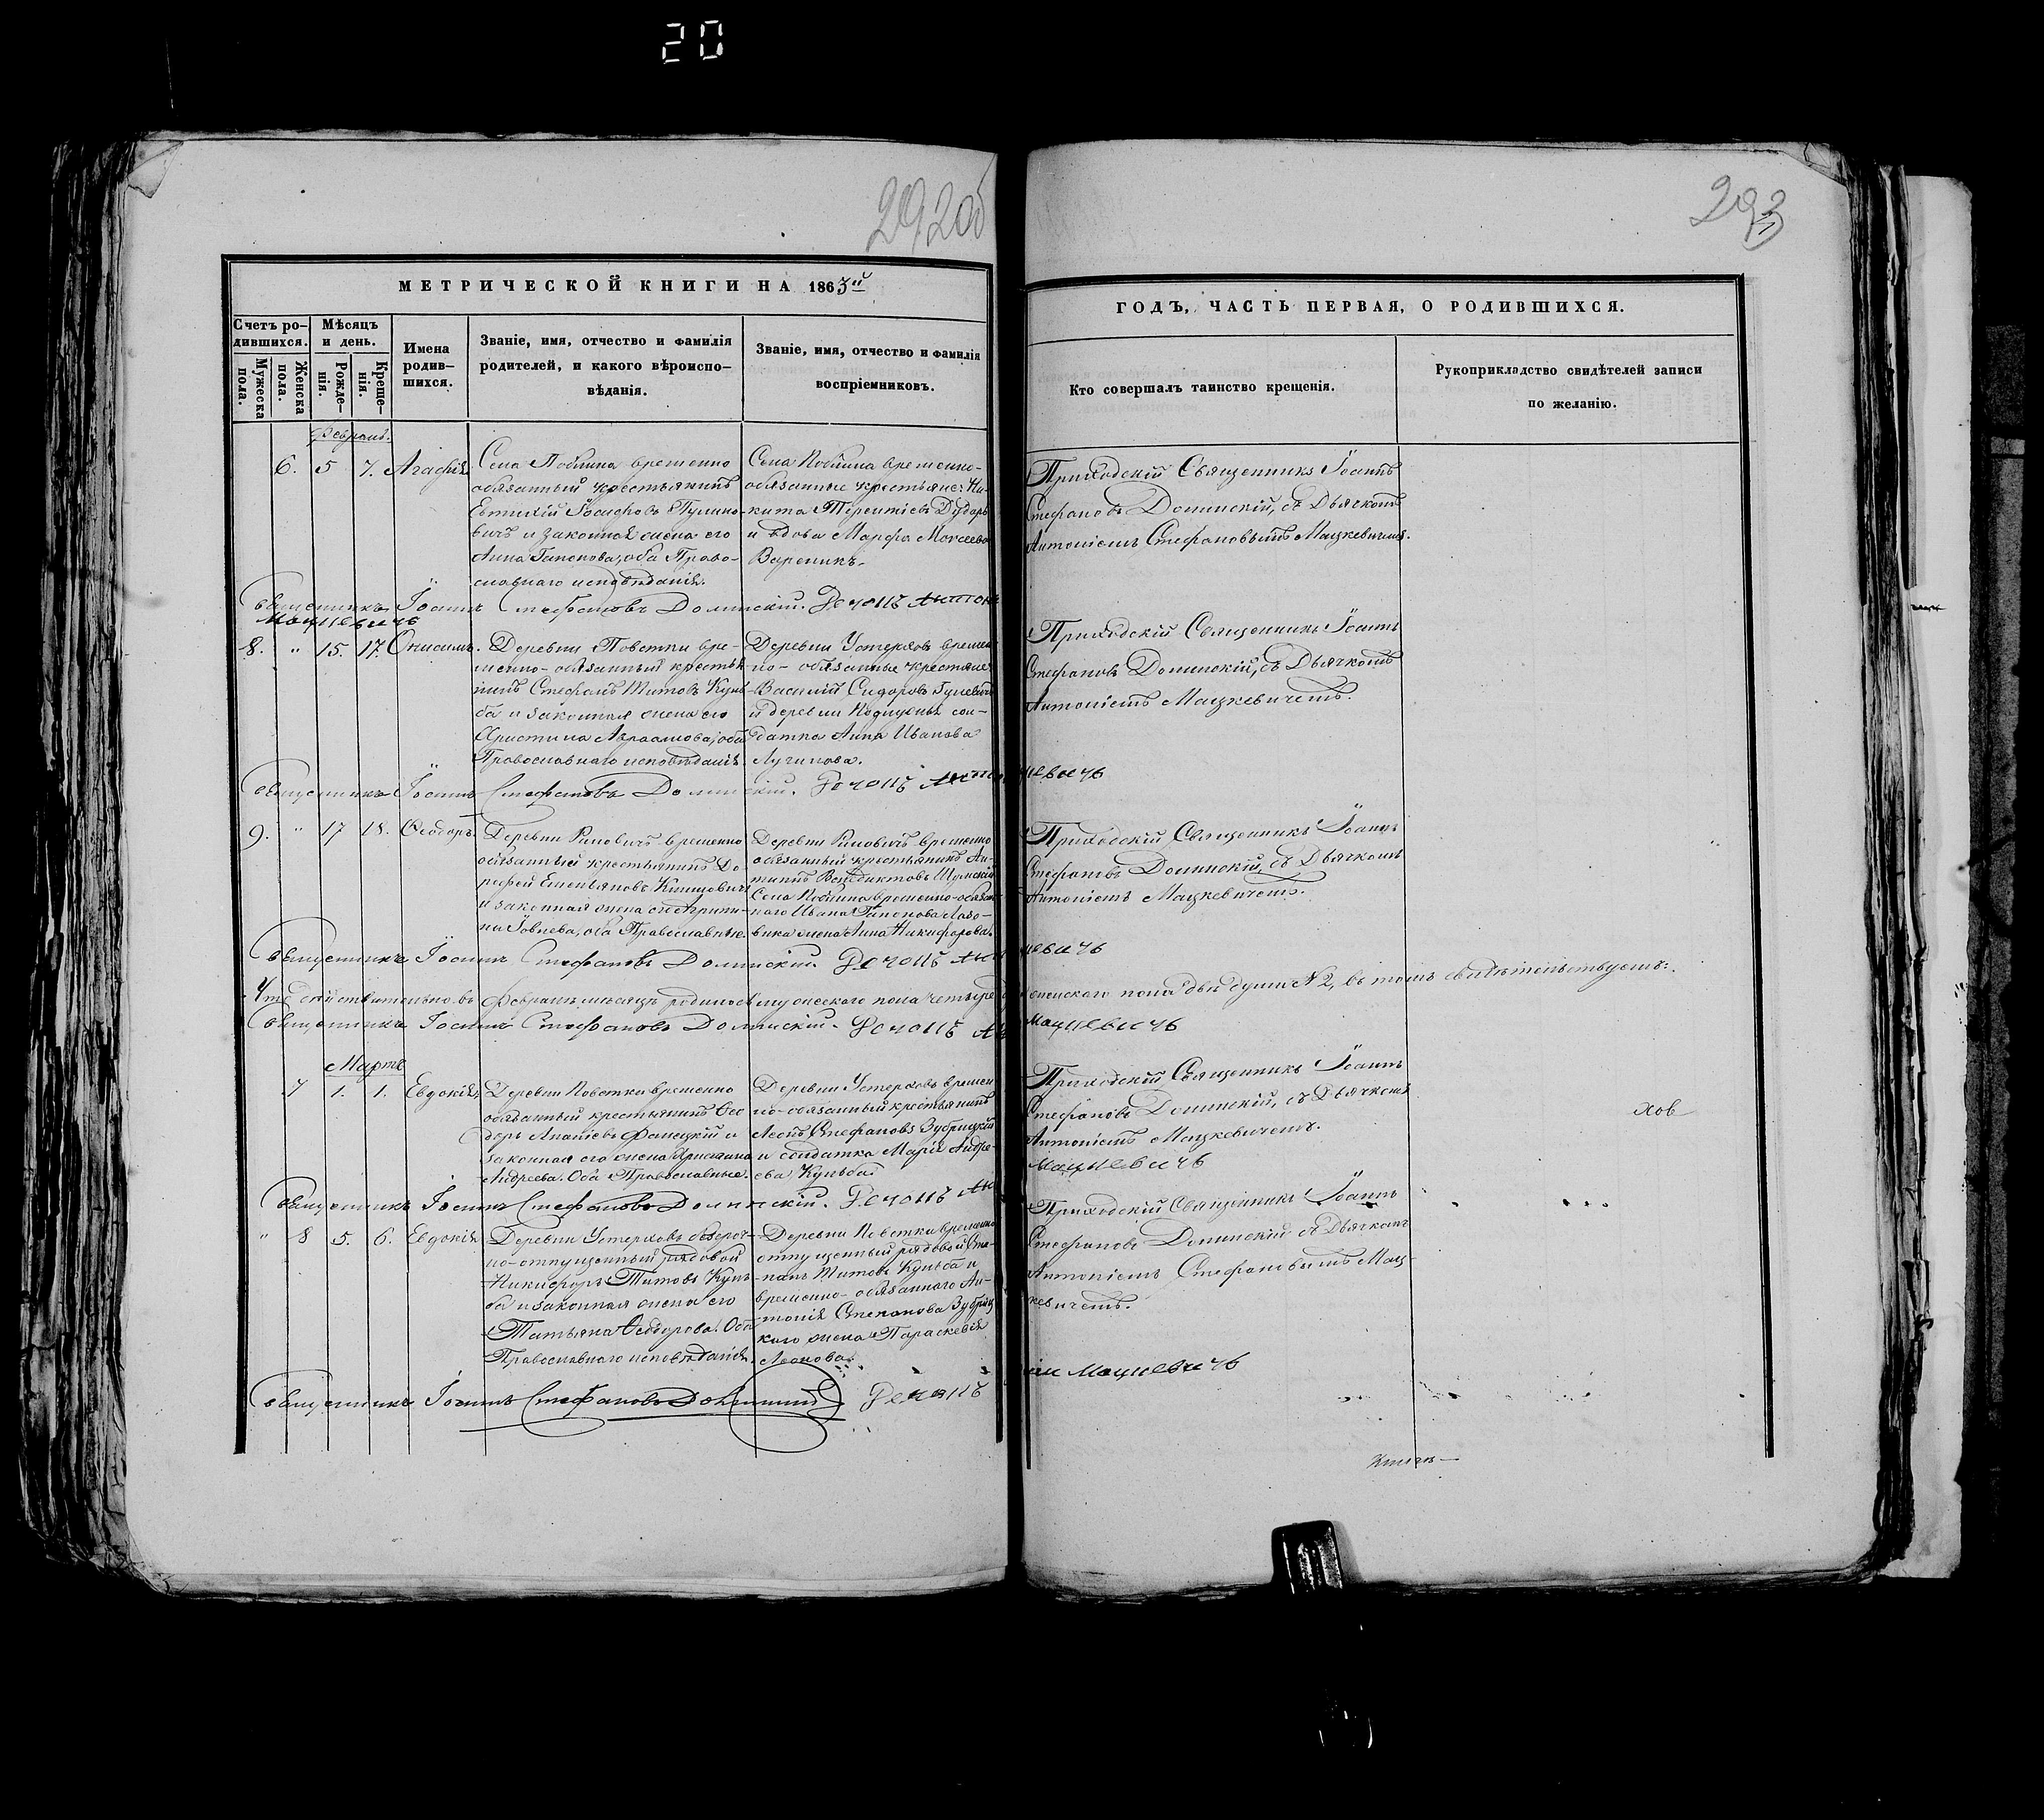 20
292об
293
МЕТРИЧЕСКОЙ КНИГИ НА 1863й
ГОДЪ, ЧАСТЬ ПЕРВАЯ, О РОДИВШИХСЯ.
Счетъ ро-
дившихся.
Мужеска
пола.
Женска
пола.
Мѣсяцъ
и день.
Рожде-
нія.
Креще-
нія.
Имена
родив-
шихся.
Званіе, имя, отчество и фамилія
родителей, и какого вѣроиспо-
вѣданія.
Званіе, имя, отчество и фамилія
воспріемниковъ.
Кто совершалъ таинство крещенія.
Рукоприкладство свидѣтелей записи
по желанію.
Февраль.
6. 5 7. Агафія
Села временно
обязанный крестьянинъ
Евтихій Іосифовъ
вичъ и законная жена его
Анна Гапонова, оба Право-
славнаго исповѣданія.
Села временно-
обязанные крестьяне: Ни-
кита Терентіевъ Дударь
и вдова Марфа Моисеева
Вареникъ.
Приходскій Священникъ Іоаннъ
Стефановъ Долинскій, съ Дьячкомъ
Антоніемъ Стефановымъ Мацкевичемъ.
Священникъ Іоаннъ Стефановъ Долинскій. Дьячокъ
Мацкевичъ
8. " 15. 17. Онисимъ.
Деревни Повстки вре-
менно-обязанный крестья-
нинъ Стефанъ Титовъ Куль-
ба и законная жена его
Христина Авраамова, оба
Православнаго исповѣданія.
Деревни Устерховъ времен-
но-обязанные крестьяне
Василій Сидоровъ
и деревни сол-
датка Анна Иванова
Лучинова.
Приходскій Священникъ Іоаннъ
Стефановъ Долинскій, съ Дьячкомъ
Антоніемъ Мацкевичемъ.
Священникъ Іоаннъ Стефановъ Долинскій. Дьячокъ
9. " 17 18. Ѳеодоръ.
Деревни Риловичъ временно
обязанный крестьянинъ До
рофей Емельяновъ
и законная жена его Ирини-
на Іовлева, оба Православные.
Деревни Риловичъ временно
обязанный крестьянинъ Ан-
типъ Венедиктовъ
Села временно-обязан-
наго Ивана Гапонова Лазо-
вика жена Анна Никифорова.
Приходскій Священникъ Іоаннъ
Стефановъ Долинскій, съ Дьячкомъ
Антоніемъ Мацкевичемъ.
Священникъ Іоаннъ Стефановъ Долинскій. Дьячокъ
Что дѣйствительно въ Февралѣ мѣсяцѣ родилось мужескаго пола четыре женскаго пола двѣ души № 2, въ томъ свидѣтельствуемъ:
Священникъ Іоаннъ Стефановъ Долинскій. Дьячокъ Мацкевичъ
Мартъ
7 1. 1. Евдокія
Деревни Повстки временно
обязанный крестьянинъ Ѳео
доръ и
законная его жена Христина
Андреева. Оба Православные.
Деревни Устерховъ времен
но-обязанный крестьянинъ
Леонъ Стефановъ Зубрицкій
и солдатка Марія Андре-
ева Кульба.
Приходскій Священникъ Іоаннъ
Стефановъ Долинскій, съ Дьячкомъ
Антоніемъ Мацкевичемъ.
хов
Священникъ Іоаннъ Стефановъ Долинскій. Дьячокъ Мацкевичъ
" 8 5. 6. Евдокія
Деревни Устерховъ безсроч-
но-отпущенный рядовой
Никифоръ Титовъ Куль-
ба и законная жена его
Татьяна Ѳеодорова. Оба
Православнаго исповѣданія.
Деревни Повстки временно
отпущенный рядовой Сте-
панъ Титовъ Кульба и
временно-обязаннаго Ан-
тонія Степанова Зубриц
каго жена Параскевія
Леонова.
Приходскій Священникъ Іоаннъ
Стефановъ Долинскій съ Дьячкомъ
Антоніемъ Стефановымъ Мац-
кевичемъ.
Священникъ Іоаннъ Стефановъ Долинскій Дьячокъ Мацкевичъ